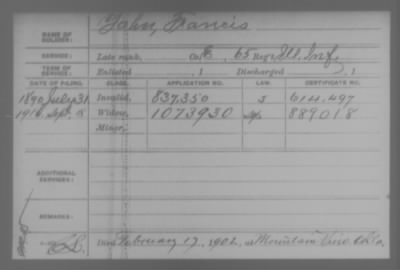 NAME OF SOLDIER: Francis
SERVICE: Late rank, Co. E, 65 Reg't Ill. Inf.
TERM OF SERVICE: Enlisted , 1 Discharged , 1
DATE OF FILING. CLASS. APPLICATION NO. LAW. CERTIFICATE NO.
1890 July 31 Invalid, 837,350 J 614,497
1916, Sept. Widow, 1073930 889018
Minor,
ADDITIONAL SERVICES:
REMARKS:
Died February 17, 1902, at Mountain View, Colo,